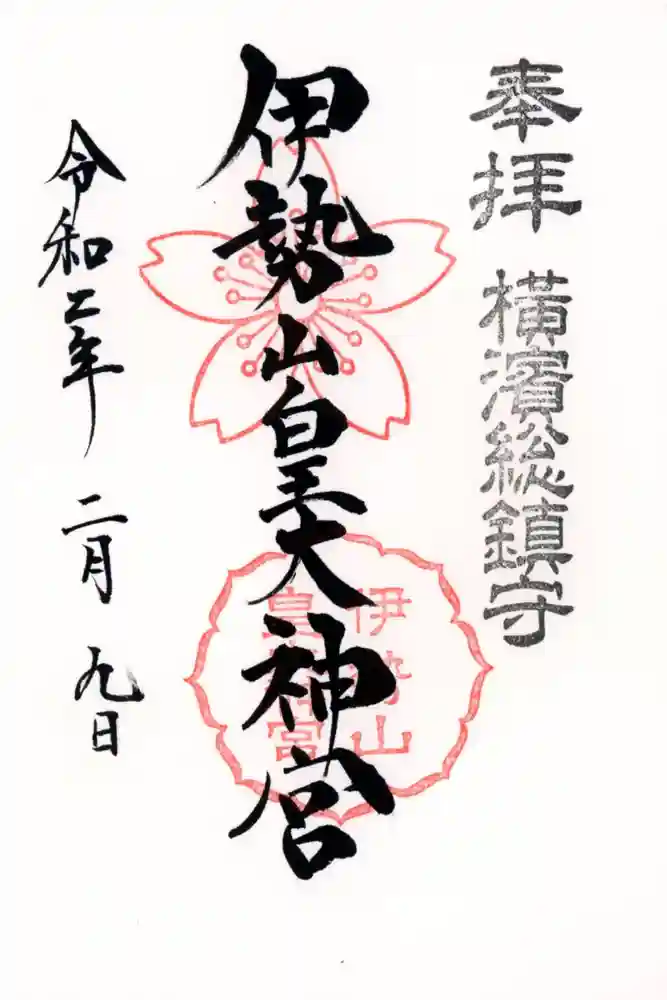 奉拝
横濱総鎮守
伊勢山皇大神宮
伊勢山
皇大神宮
令和二年
二月
九日